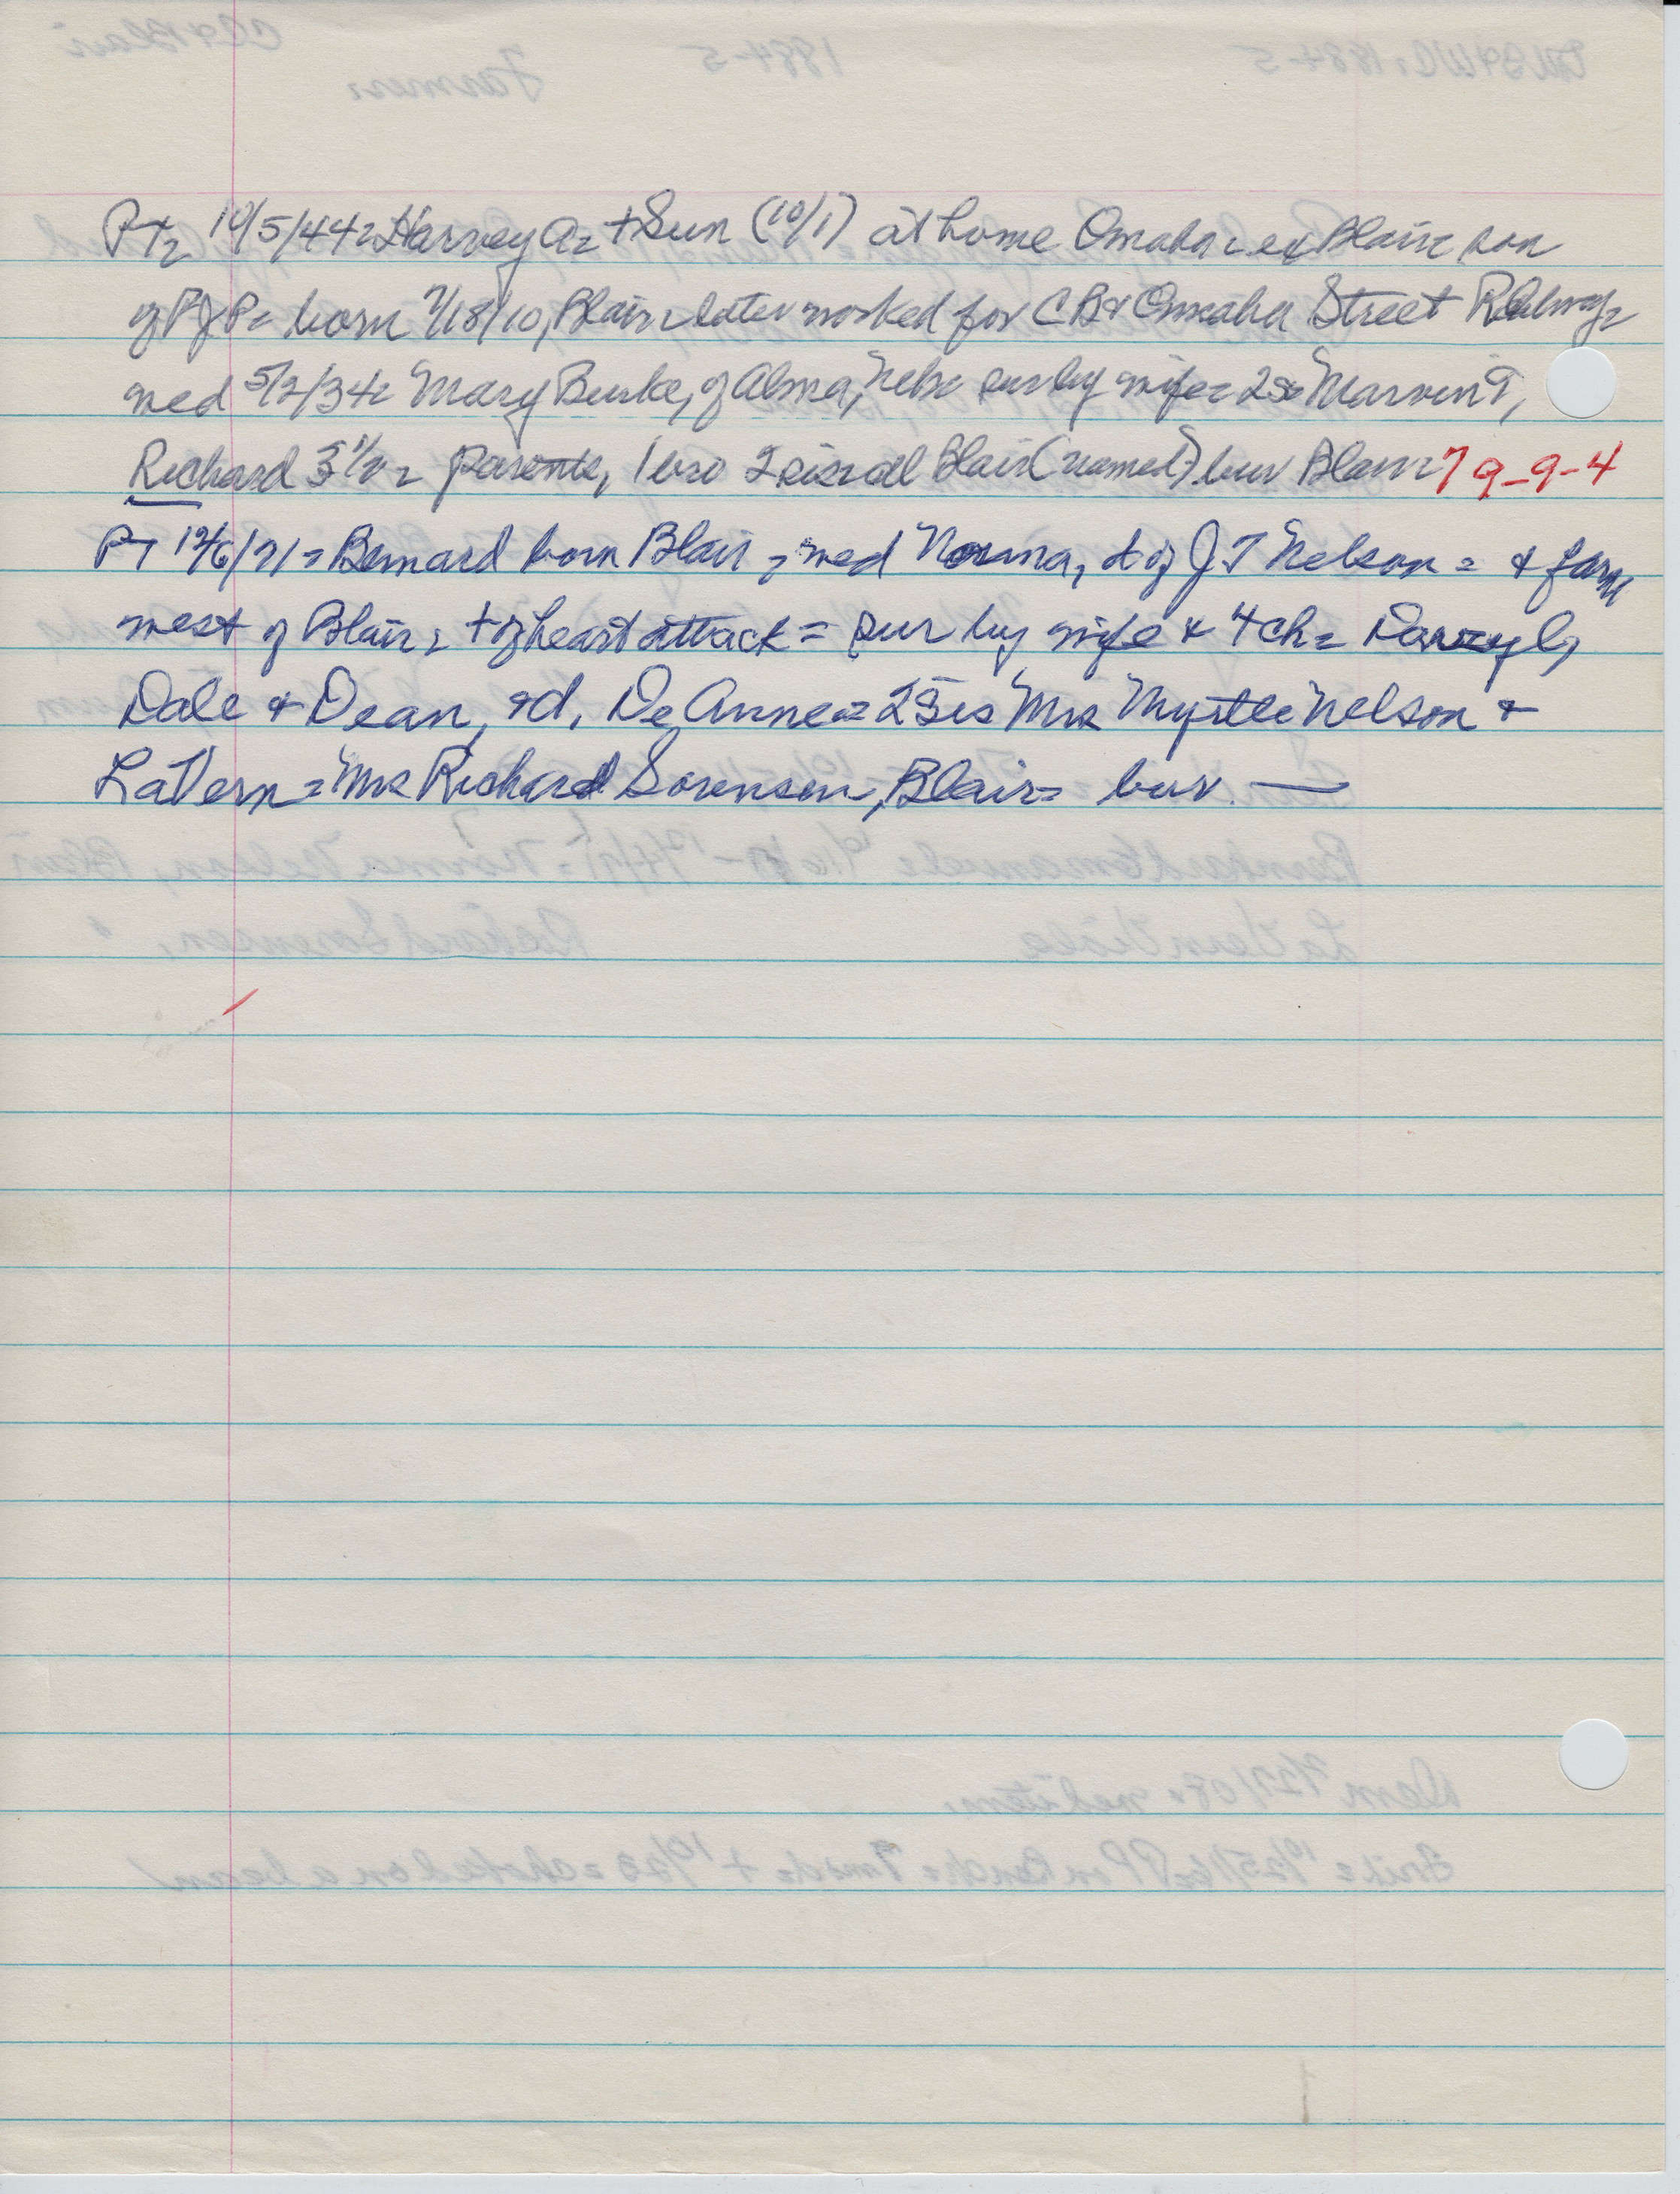 PT= 10/5/44= Harvey A= + Sun (10/1) at home Omaha = ex Blair= son
of P= born 7/18/10, Blair= later worked for CB & Omaha Street Railway=
wed 5/2/34= Mary Burke, of Alma, Neb= sur by wife= 2s= Marvin 9,
Richard 3 1/2= parents, 1 bro 2 sis= all Blair (named) bur Blair= 79-9-4
PT 12/6/71= Bernard born Blair = wed Norma, d of J T Nelson = & farm
west of Blair= + of heart attack = sur by wife & 4 ch= Darryl,
Dale & Dean, & d, DeAnne= 2 sis Mrs Myrtle Nelson &
LaVern= Mrs Richard Sorensen, Blair= bur. —